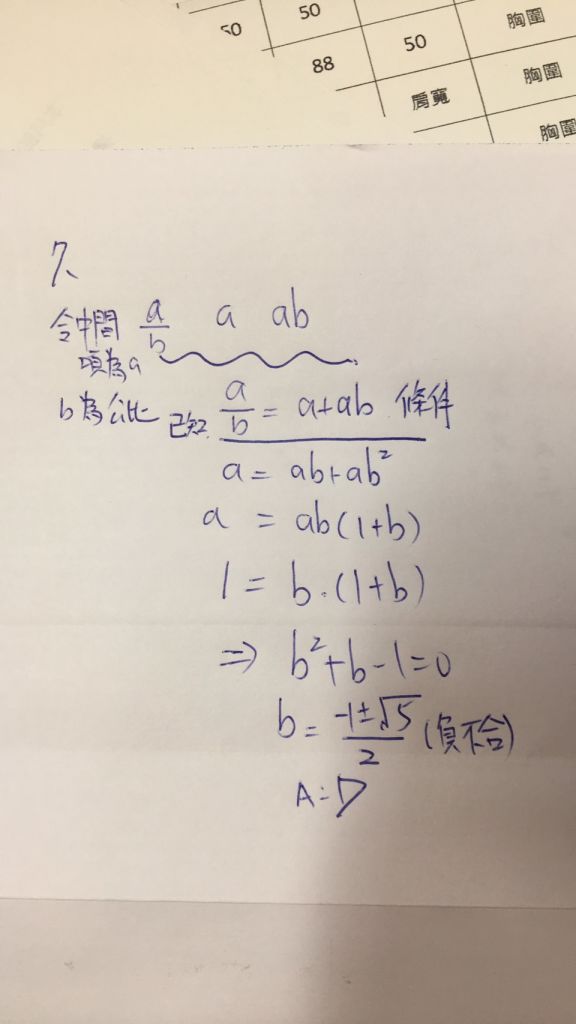 50 50 胸圍
88 50 胸圍
肩寬 胸圍
7、
令中間 a/b a ab
項為a
b為公比 已知 a/b = a+ab 條件
a = ab+ab²
a = ab(1+b)
1 = b·(1+b)
⇒ b²+b-1=0
b = (-1±√5)/2 (負不合)
A:D